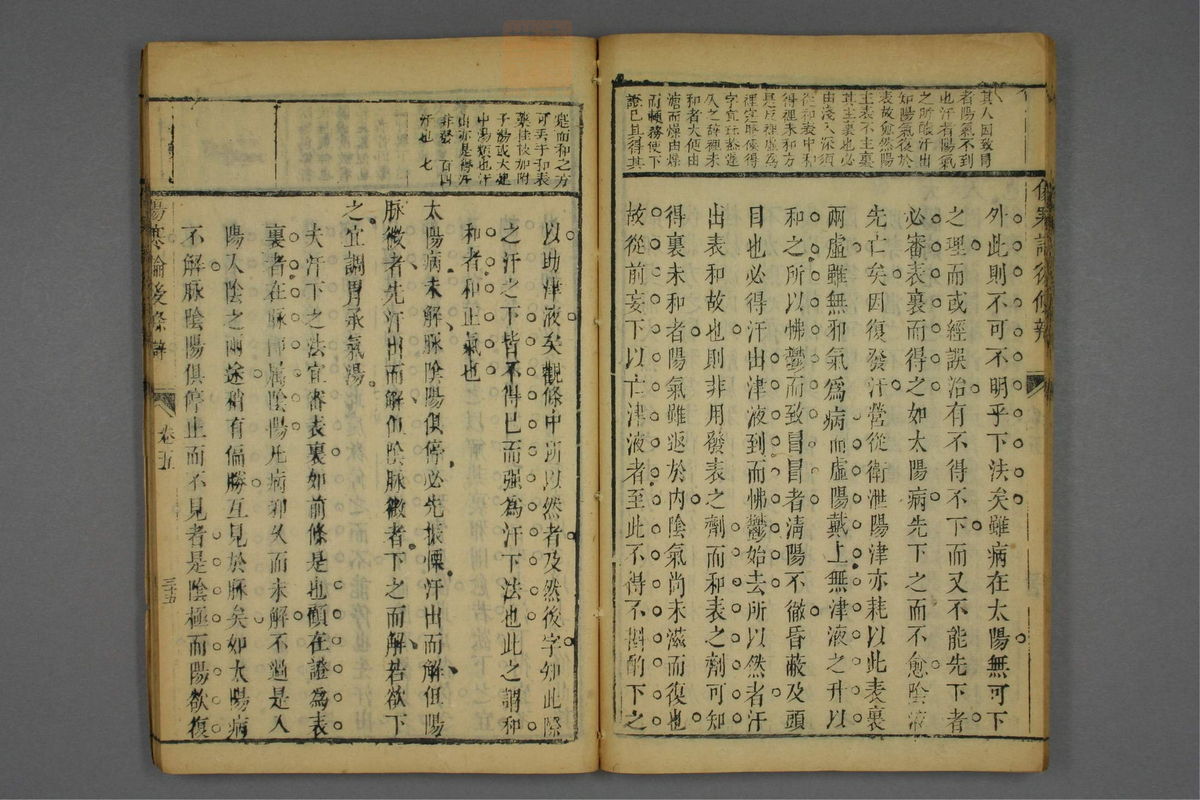 其人因致冒
者陽氣不到
也汗者陽氣
之所釀汗出
如陽氣復於
表故愈然陽
主表不主裏
其主裏也必
由淺入深須
從和表中和
得裡未和方
是反裡虛為
裡實故使得
字宜玩然從
人之辭裡未
和者大便由
溏而燥由燥
而鞕務使下
證已具得其
傷寒論後條辨
外此則不可不明乎下法矣雖病在太陽無可下
之理而或經誤治有不得不下而又不能先下者
必審表裏而得之如太陽病先下之而不愈陰液
先亡矣因復發汗營從衛泄陽津亦耗以此表裏
兩虛雖無邪氣為病而虛陽戴上無津液之升以
和之所以怫鬱而致冒冒者清陽不徹昏蔽及頭
目也必得汗出津液到而怫鬱始去所以然者汗
出表和故也則非用發表之劑而和表之劑可知
得裏未和者陽氣雖返於內陰氣尚未滋而復也
故從前妄下以亡津液者至此不得不斟酌下之
寔而和之方
可丟手和表
藥桂枝加附
子湯或大建
中湯類也汗
出亦是得汗
非發 百四
汗也 七
以助津液矣觀條中所以然者及然後字知此際
之汗之下皆不得已而强為汗下法也此之謂和
和者和正氣也
太陽病未解脉陰陽俱停必先振慄汗出而解但陽
脉微者先汗出而解但陰脉微者下之而解若欲下
之宜調胃承氣湯
夫汗下之法宜審表裏如前條是也顧在證為表
裏者在脉即属陰陽凡病邪久而未解不過是入
陽入陰之兩途稍有偏勝互見於脉矣如太陽病
不解脉陰陽俱停止而不見者是陰極而陽欲復
傷寒論後條辨
卷五
三十五